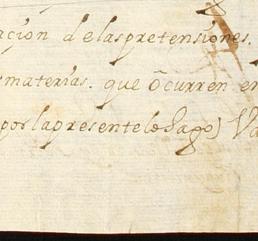 acion delaspretensiones.
materias. que ōcurren en
porlapresentelehago) Va